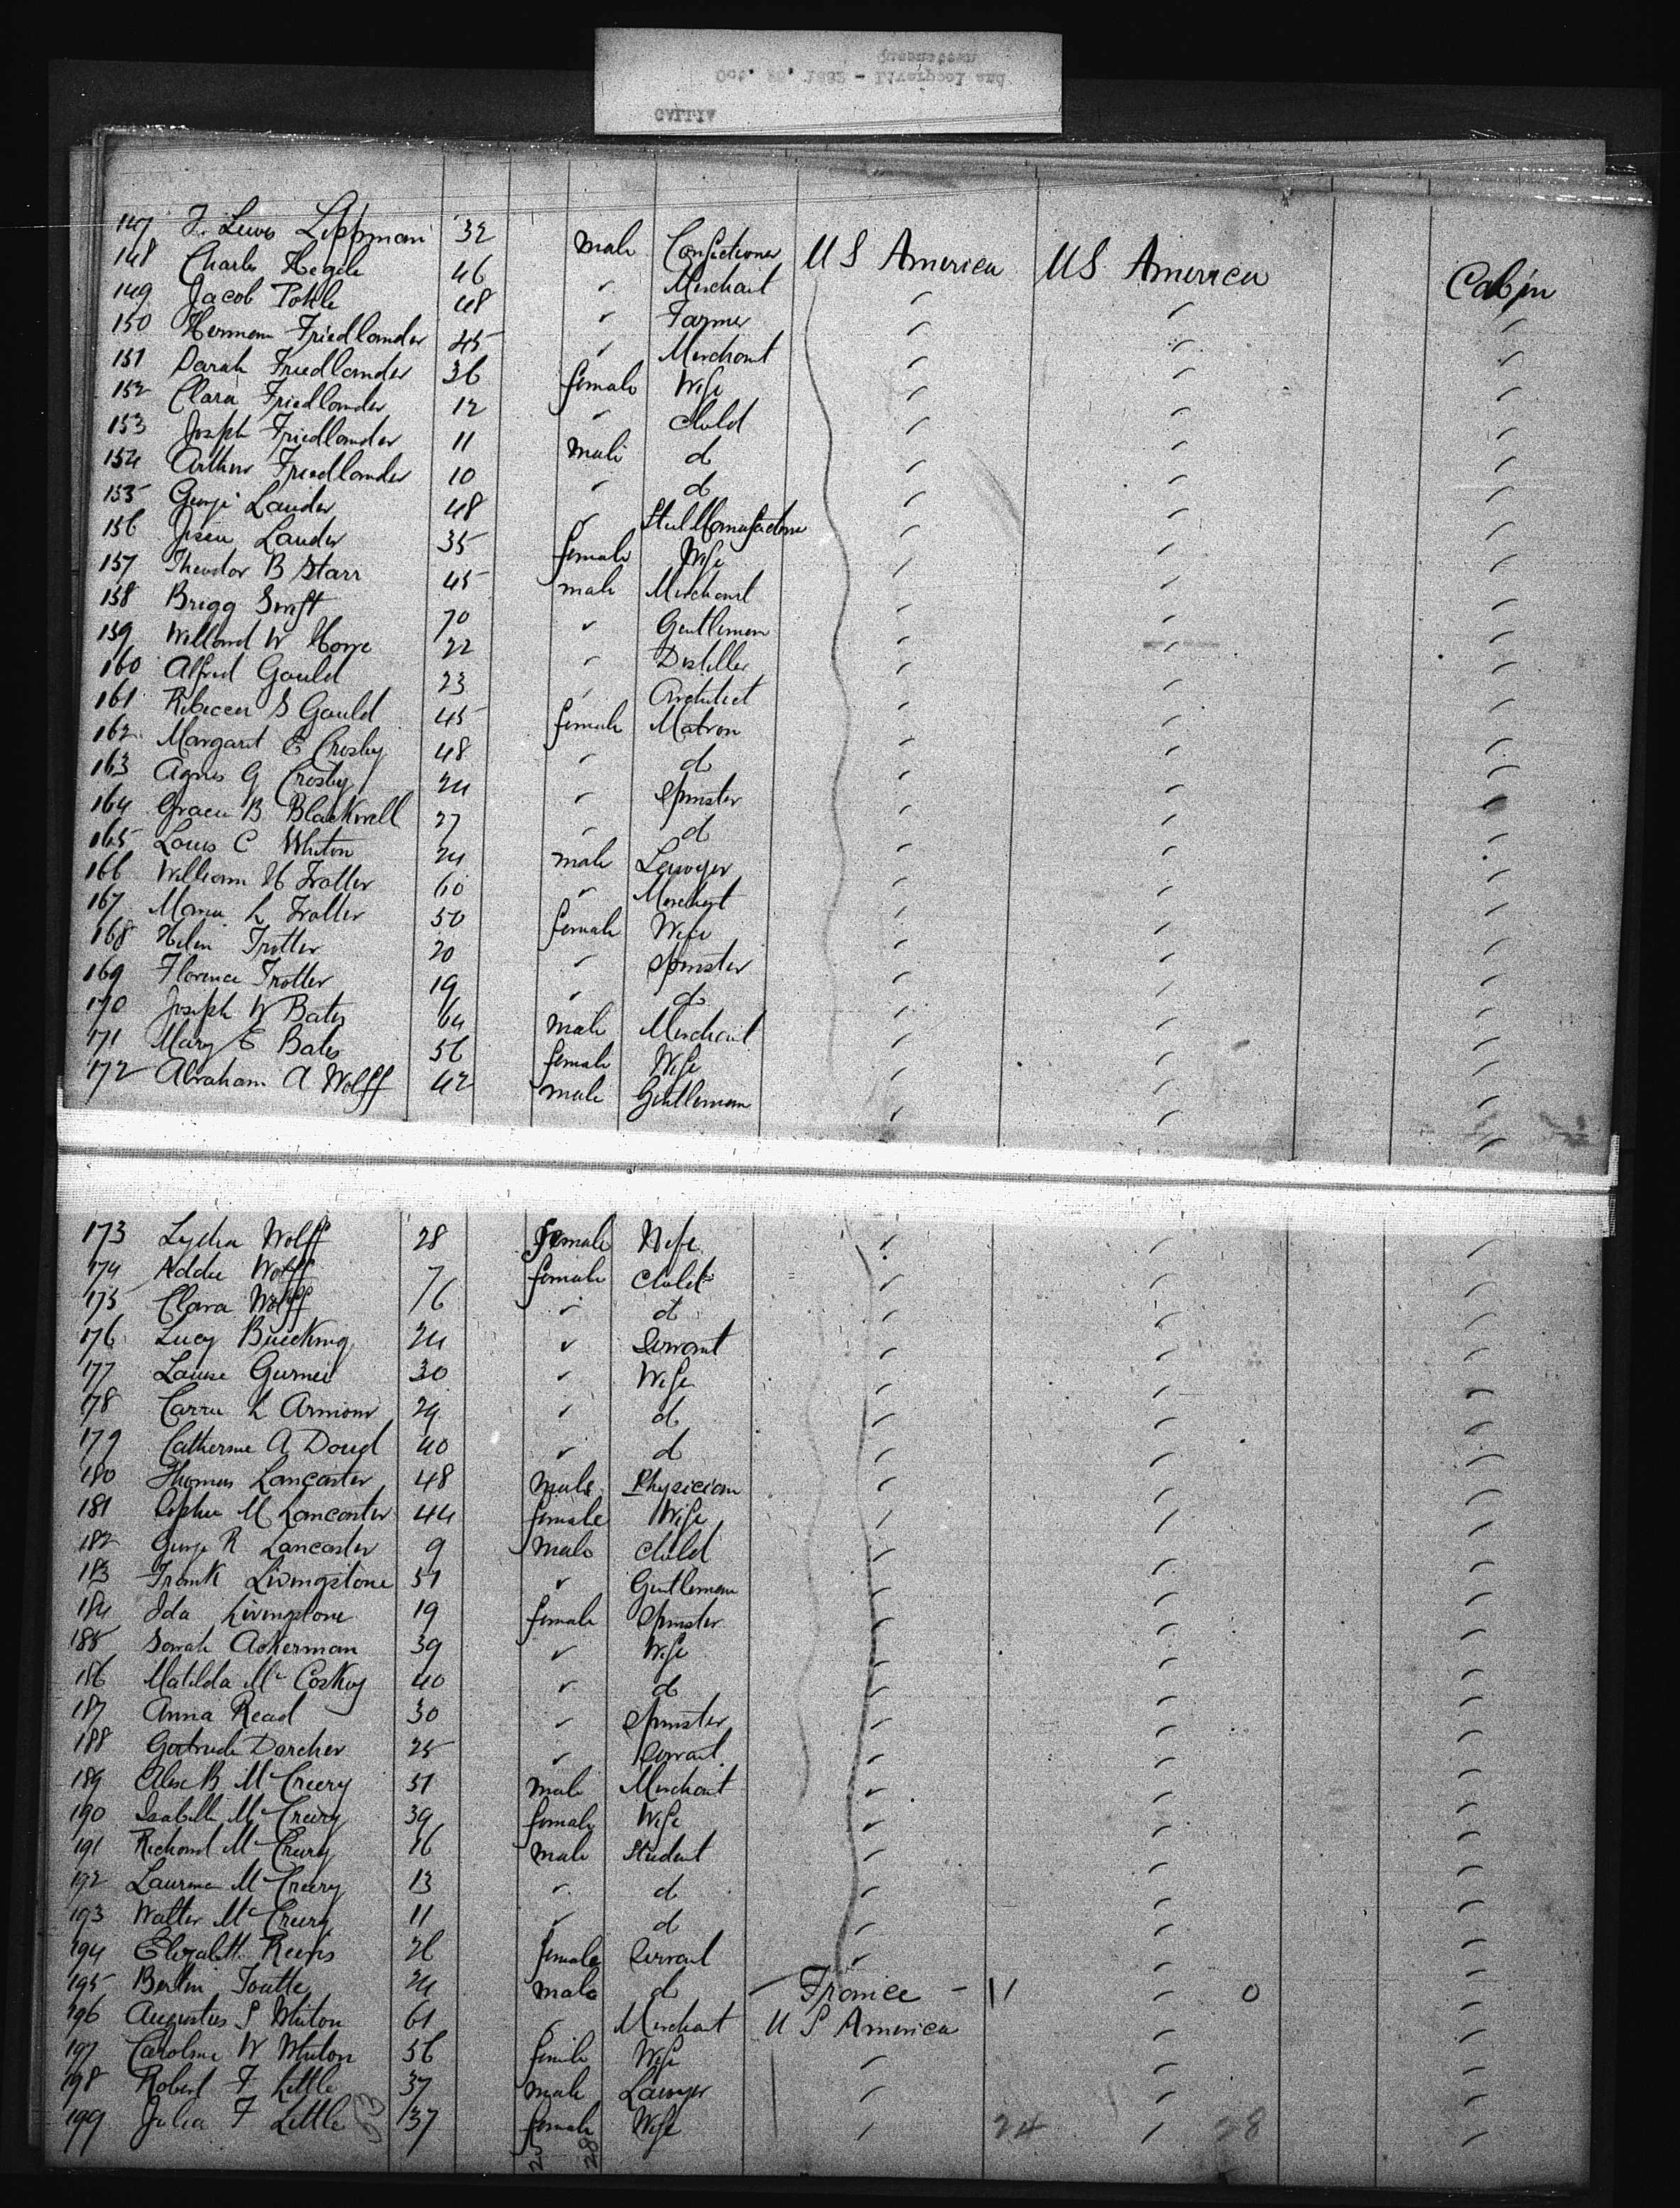 GALLIA
Oct. 25, 1882 - Liverpool and
Queenstown
147 F. Lewis Lippman 32 male Confectioner U S America U S America Cabin
148 Charles Hegele 46 " Merchant " " "
149 Jacob Pohle 48 " Farmer " " "
150 Hermann Friedlander 45 " Merchant " " "
151 Sarah Friedlander 36 female Wife " " "
152 Clara Friedlander 12 " Child " " "
153 Joseph Friedlander 11 male do " " "
154 Arthur Friedlander 10 " do " " "
155 George Lauder 48 " Steel Manufacturer " " "
156 Lauder 35 female Wife " " "
157 Theodor B Starr 45 male Merchant " " "
158 Brigg Swift 70 " Gentleman " " "
159 Willard W 22 " Distiller " " "
160 Alfred Gould 23 " Architect " " "
161 Rebecca S Gould 45 female Matron " " "
162 Margaret E Crosby 48 " do " " "
163 Agnes G Crosby 24 " Spinster " " "
164 Grace B Blackwell 27 " do " " "
165 Louis C Whiton 24 male Lawyer " " "
166 William H Trotter 60 " Merchant " " "
167 Maria L Trotter 50 female Wife " " "
168 Helen Trotter 20 " Spinster " " "
169 Florence Trotter 19 " do " " "
170 Joseph W Bates 64 male Merchant " " "
171 Mary E Bates 56 female Wife " " "
172 Abraham A Wolff 42 male Gentleman " " "
173 Lydia Wolff 28 Female Wife " " "
174 Addie Wolff 7 female Child " " "
175 Clara Wolff 6 " do " " "
176 Lucy Buecking 24 " Servant " " "
177 Louise Gurnee 30 " Wife " " "
178 Carrie L Armour 29 " do " " "
179 Catherine A Doud 40 " do " " "
180 Thomas Lancaster 48 male Physician " " "
181 Sophie M Lancaster 44 female Wife " " "
182 George R Lancaster 9 male Child " " "
183 Frank Livingstone 51 " Gentleman " " "
184 Ida Livingstone 19 female Spinster " " "
185 Sarah Ackerman 39 " Wife " " "
186 Matilda Mc Coskey 40 " do " " "
187 Anna Read 30 " Spinster " " "
188 Gertrude Darcher 25 " Servant " " "
189 Alex B McCreery 51 male Merchant " " "
190 Isabella McCreery 39 female Wife " " "
191 Richard McCreery 16 male Student " " "
192 Laurence McCreery 13 " do " " "
193 Walter McCreery 11 " do " " "
194 Elizabeth Reevis 26 female Servant " " "
195 Bertin Toutte 24 male do - France - 11 " 0 "
196 Augustus S Whiton 61 " Merchant U S America " "
197 Caroline W Whiton 56 female Wife " " "
198 Robert F Little 37 male Lawyer " " "
199 Julia F Little 37 female Wife " 24 " 28 "
25 28